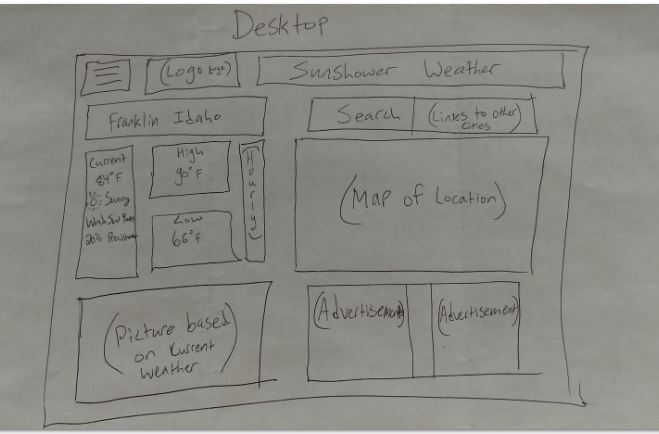 Desktop
(Logo
Sunshower Weather
Franklin Idaho
Search
(Links to other
cities)
Current
84°F
Sunny
Wind SW
20%
High
90°F
Low
66°F
(Hourly)
(Map of Location)
(Picture based
on Current
weather)
(Advertisement)
(Advertisement)